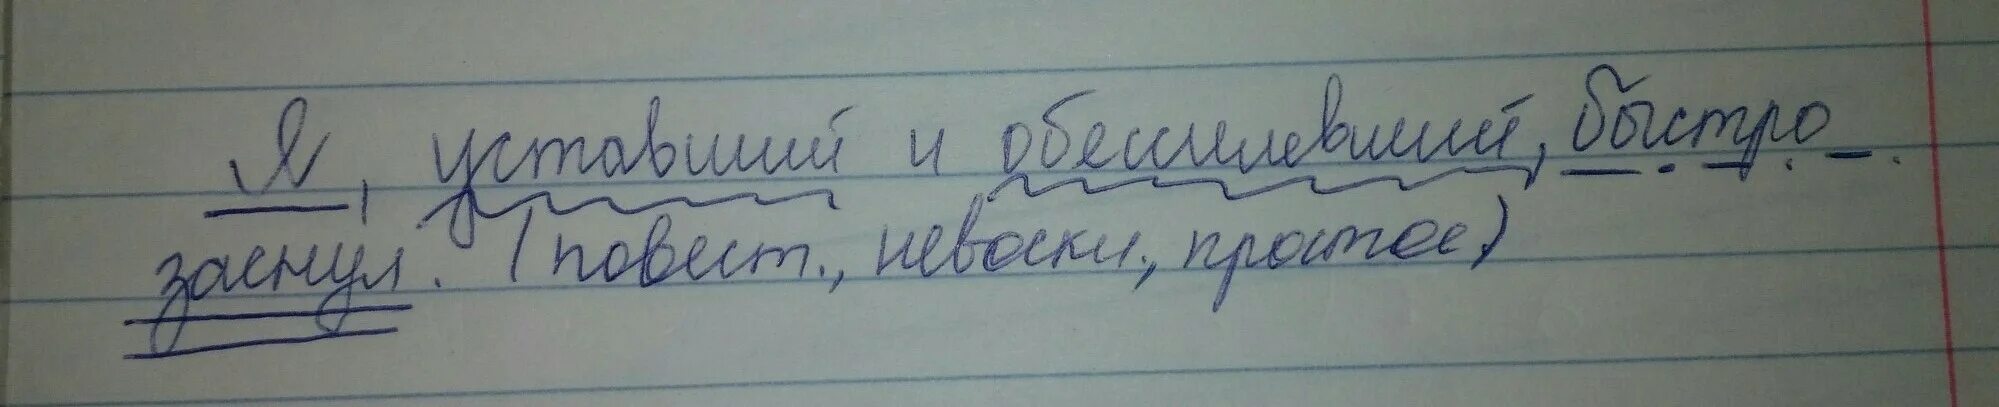 Я, уставший и обессилевший, быстро
заснул. (повест., невоскл., простое)